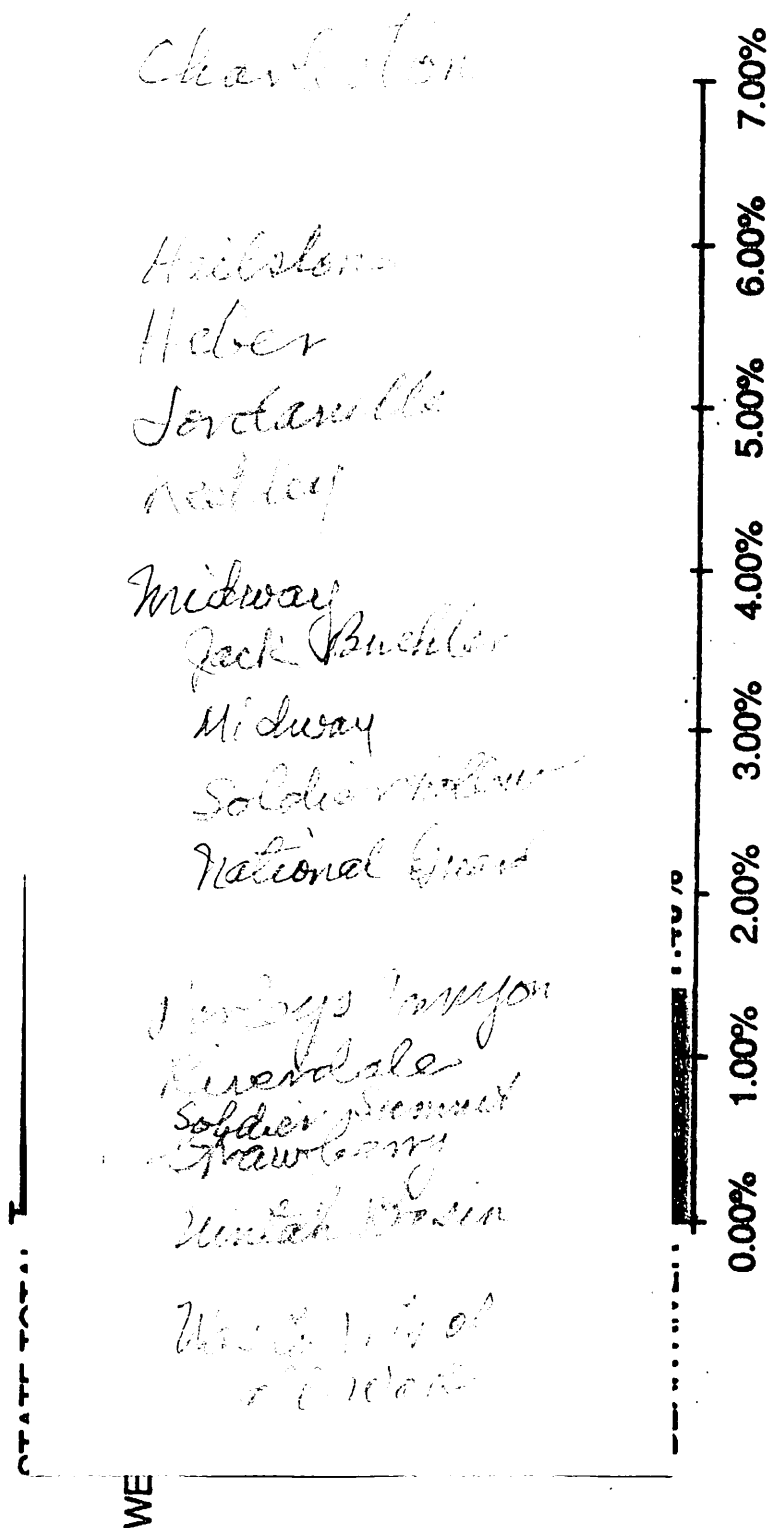 Charleston
Hailstone
Heber
Jordanelle
Keetley
Midway
Jack Buehler
Midway
Soldier Hollow
National Guard
Canyon
Riverdale
Soldier Summit
Strawberry
Uintah Basin
of
STATE TOTAL
WE
7.00%
6.00%
5.00%
4.00%
3.00%
2.00%
1.00%
0.00%